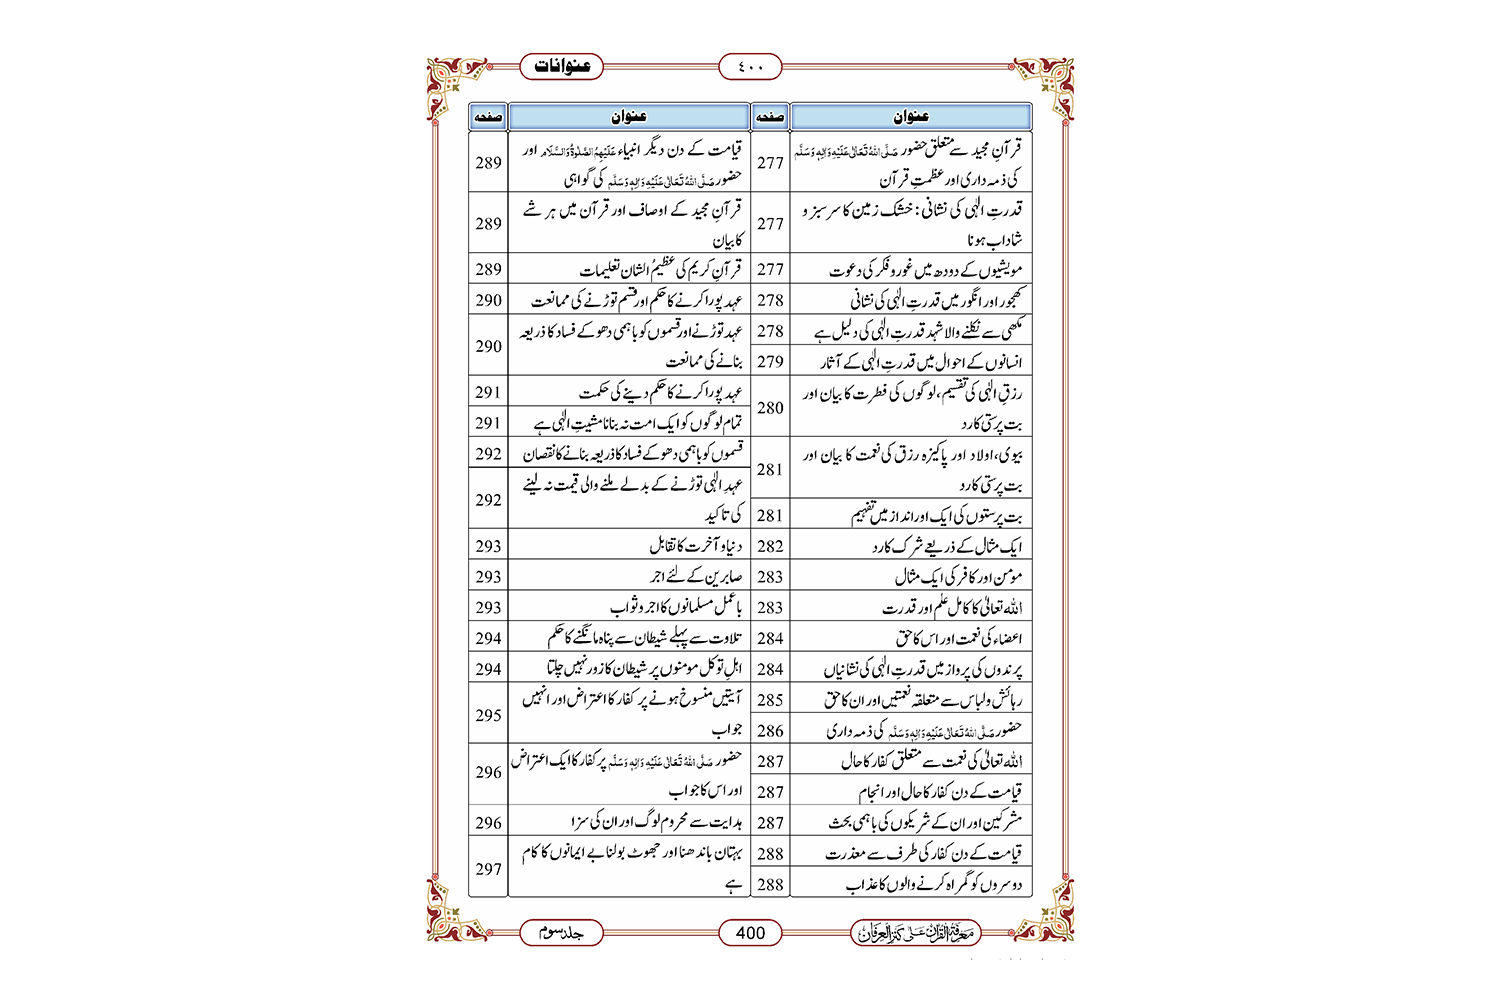 عنوانات
٤٠٠
عنوان
صفحہ
قرآنِ مجید سے متعلق حضور صَلَّی اللہُ تَعَالٰی عَلَیْہِ وَاٰلِہٖ وَسَلَّم
کی ذمہ داری اور عظمتِ قرآن
277
قدرتِ الٰہی کی نشانی: خشک زمین کا سرسبز و
شاداب ہونا
277
مویشیوں کے دودھ میں غور و فکر کی دعوت
277
کھجور اور انگور میں قدرتِ الٰہی کی نشانی
278
مکھی سے نکلنے والا شہد قدرتِ الٰہی کی دلیل ہے
278
انسانوں کے احوال میں قدرتِ الٰہی کے آثار
279
رزقِ الٰہی کی تقسیم، لوگوں کی فطرت کا بیان اور
بت پرستی کا رد
280
بیوی، اولاد اور پاکیزہ رزق کی نعمت کا بیان اور
بت پرستی کا رد
281
بت پرستوں کی ایک اور انداز میں تفہیم
281
ایک مثال کے ذریعے شرک کا رد
282
مومن اور کافر کی ایک مثال
283
اللہ تعالیٰ کا کامل علم اور قدرت
283
اعضاء کی نعمت اور اس کا حق
284
پرندوں کی پرواز میں قدرتِ الٰہی کی نشانیاں
284
رہائش و لباس سے متعلقہ نعمتیں اور ان کا حق
285
حضور صَلَّی اللہُ تَعَالٰی عَلَیْہِ وَاٰلِہٖ وَسَلَّم کی ذمہ داری
286
اللہ تعالیٰ کی نعمت سے متعلق کفار کا حال
287
قیامت کے دن کفار کا حال اور انجام
287
مشرکین اور ان کے شریکوں کی باہمی بحث
287
قیامت کے دن کفار کی طرف سے معذرت
288
دوسروں کو گمراہ کرنے والوں کا عذاب
288
عنوان
صفحہ
قیامت کے دن دیگر انبیاء عَلَیْہِمُ الصَّلٰوۃُ وَالسَّلَام اور
حضور صَلَّی اللہُ تَعَالٰی عَلَیْہِ وَاٰلِہٖ وَسَلَّم کی گواہی
289
قرآنِ مجید کے اوصاف اور قرآن میں ہر شے
کا بیان
289
قرآنِ کریم کی عظیمُ الشان تعلیمات
289
عہد پورا کرنے کا حکم اور قسم توڑنے کی ممانعت
290
عہد توڑنے اور قسموں کو باہمی دھوکے فساد کا ذریعہ
بنانے کی ممانعت
290
عہد پورا کرنے کا حکم دینے کی حکمت
291
تمام لوگوں کو ایک امت نہ بنانا مشیتِ الٰہی ہے
291
قسموں کو باہمی دھوکے فساد کا ذریعہ بنانے کا نقصان
292
عہدِ الٰہی توڑنے کے بدلے ملنے والی قیمت نہ لینے
کی تاکید
292
دنیا و آخرت کا تقابل
293
صابرین کے لئے اجر
293
باعمل مسلمانوں کا اجر و ثواب
293
تلاوت سے پہلے شیطان سے پناہ مانگنے کا حکم
294
اہلِ توکل مومنوں پر شیطان کا زور نہیں چلتا
294
آیتیں منسوخ ہونے پر کفار کا اعتراض اور انہیں
جواب
295
حضور صَلَّی اللہُ تَعَالٰی عَلَیْہِ وَاٰلِہٖ وَسَلَّم پر کفار کا ایک اعتراض
اور اس کا جواب
296
ہدایت سے محروم لوگ اور ان کی سزا
296
بہتان باندھنا اور جھوٹ بولنا بے ایمانوں کا کام
ہے
297
معرفۃ القرآن علی کنز العرفان
400
جلد سوم